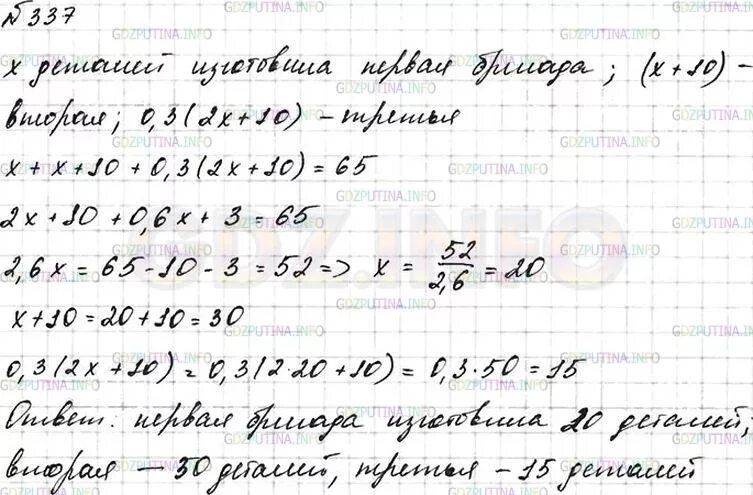 №337
x деталей изготовила первая бригада; (x+10) -
вторая; 0,3(2x+10) - третья
x + x + 10 + 0,3(2x+10) = 65
2x + 10 + 0,6x + 3 = 65
2,6x = 65 - 10 - 3 = 52 => x = 52/2,6 = 20
x+10 = 20+10 = 30
0,3(2x+10) = 0,3(2·20+10) = 0,3·50 = 15
Ответ: первая бригада изготовила 20 деталей,
вторая — 30 деталей, третья - 15 деталей
GDZ.INFO
GDZPUTINA.INFO